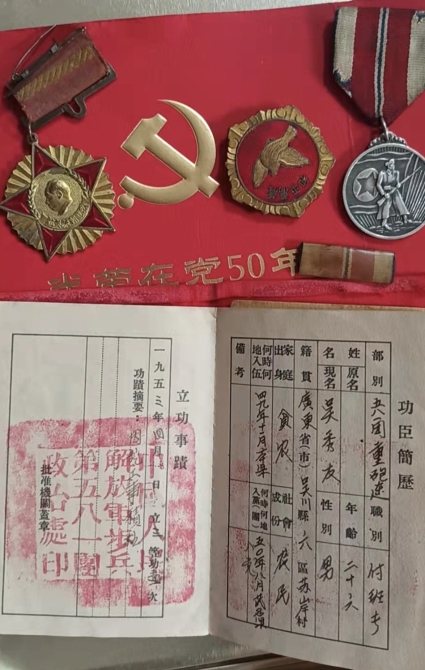 光荣在党50年
功臣簡歷
部別 兵團重砲連 職別 付班長
姓名 原名 現名 吳秀友 年齡 二十六 性別 男
籍貫 廣東省(市)吳川縣六區 村
家庭出身 貧农 社會成份 农民
何時何地入伍 四九年十一月 何時何地入黨(團) 五〇年八月
備考
立功事蹟
一九五三年四月 日 立三等功 次
功蹟摘要:
批准機關蓋章
中國人民解放軍步兵第五八一團政治處印